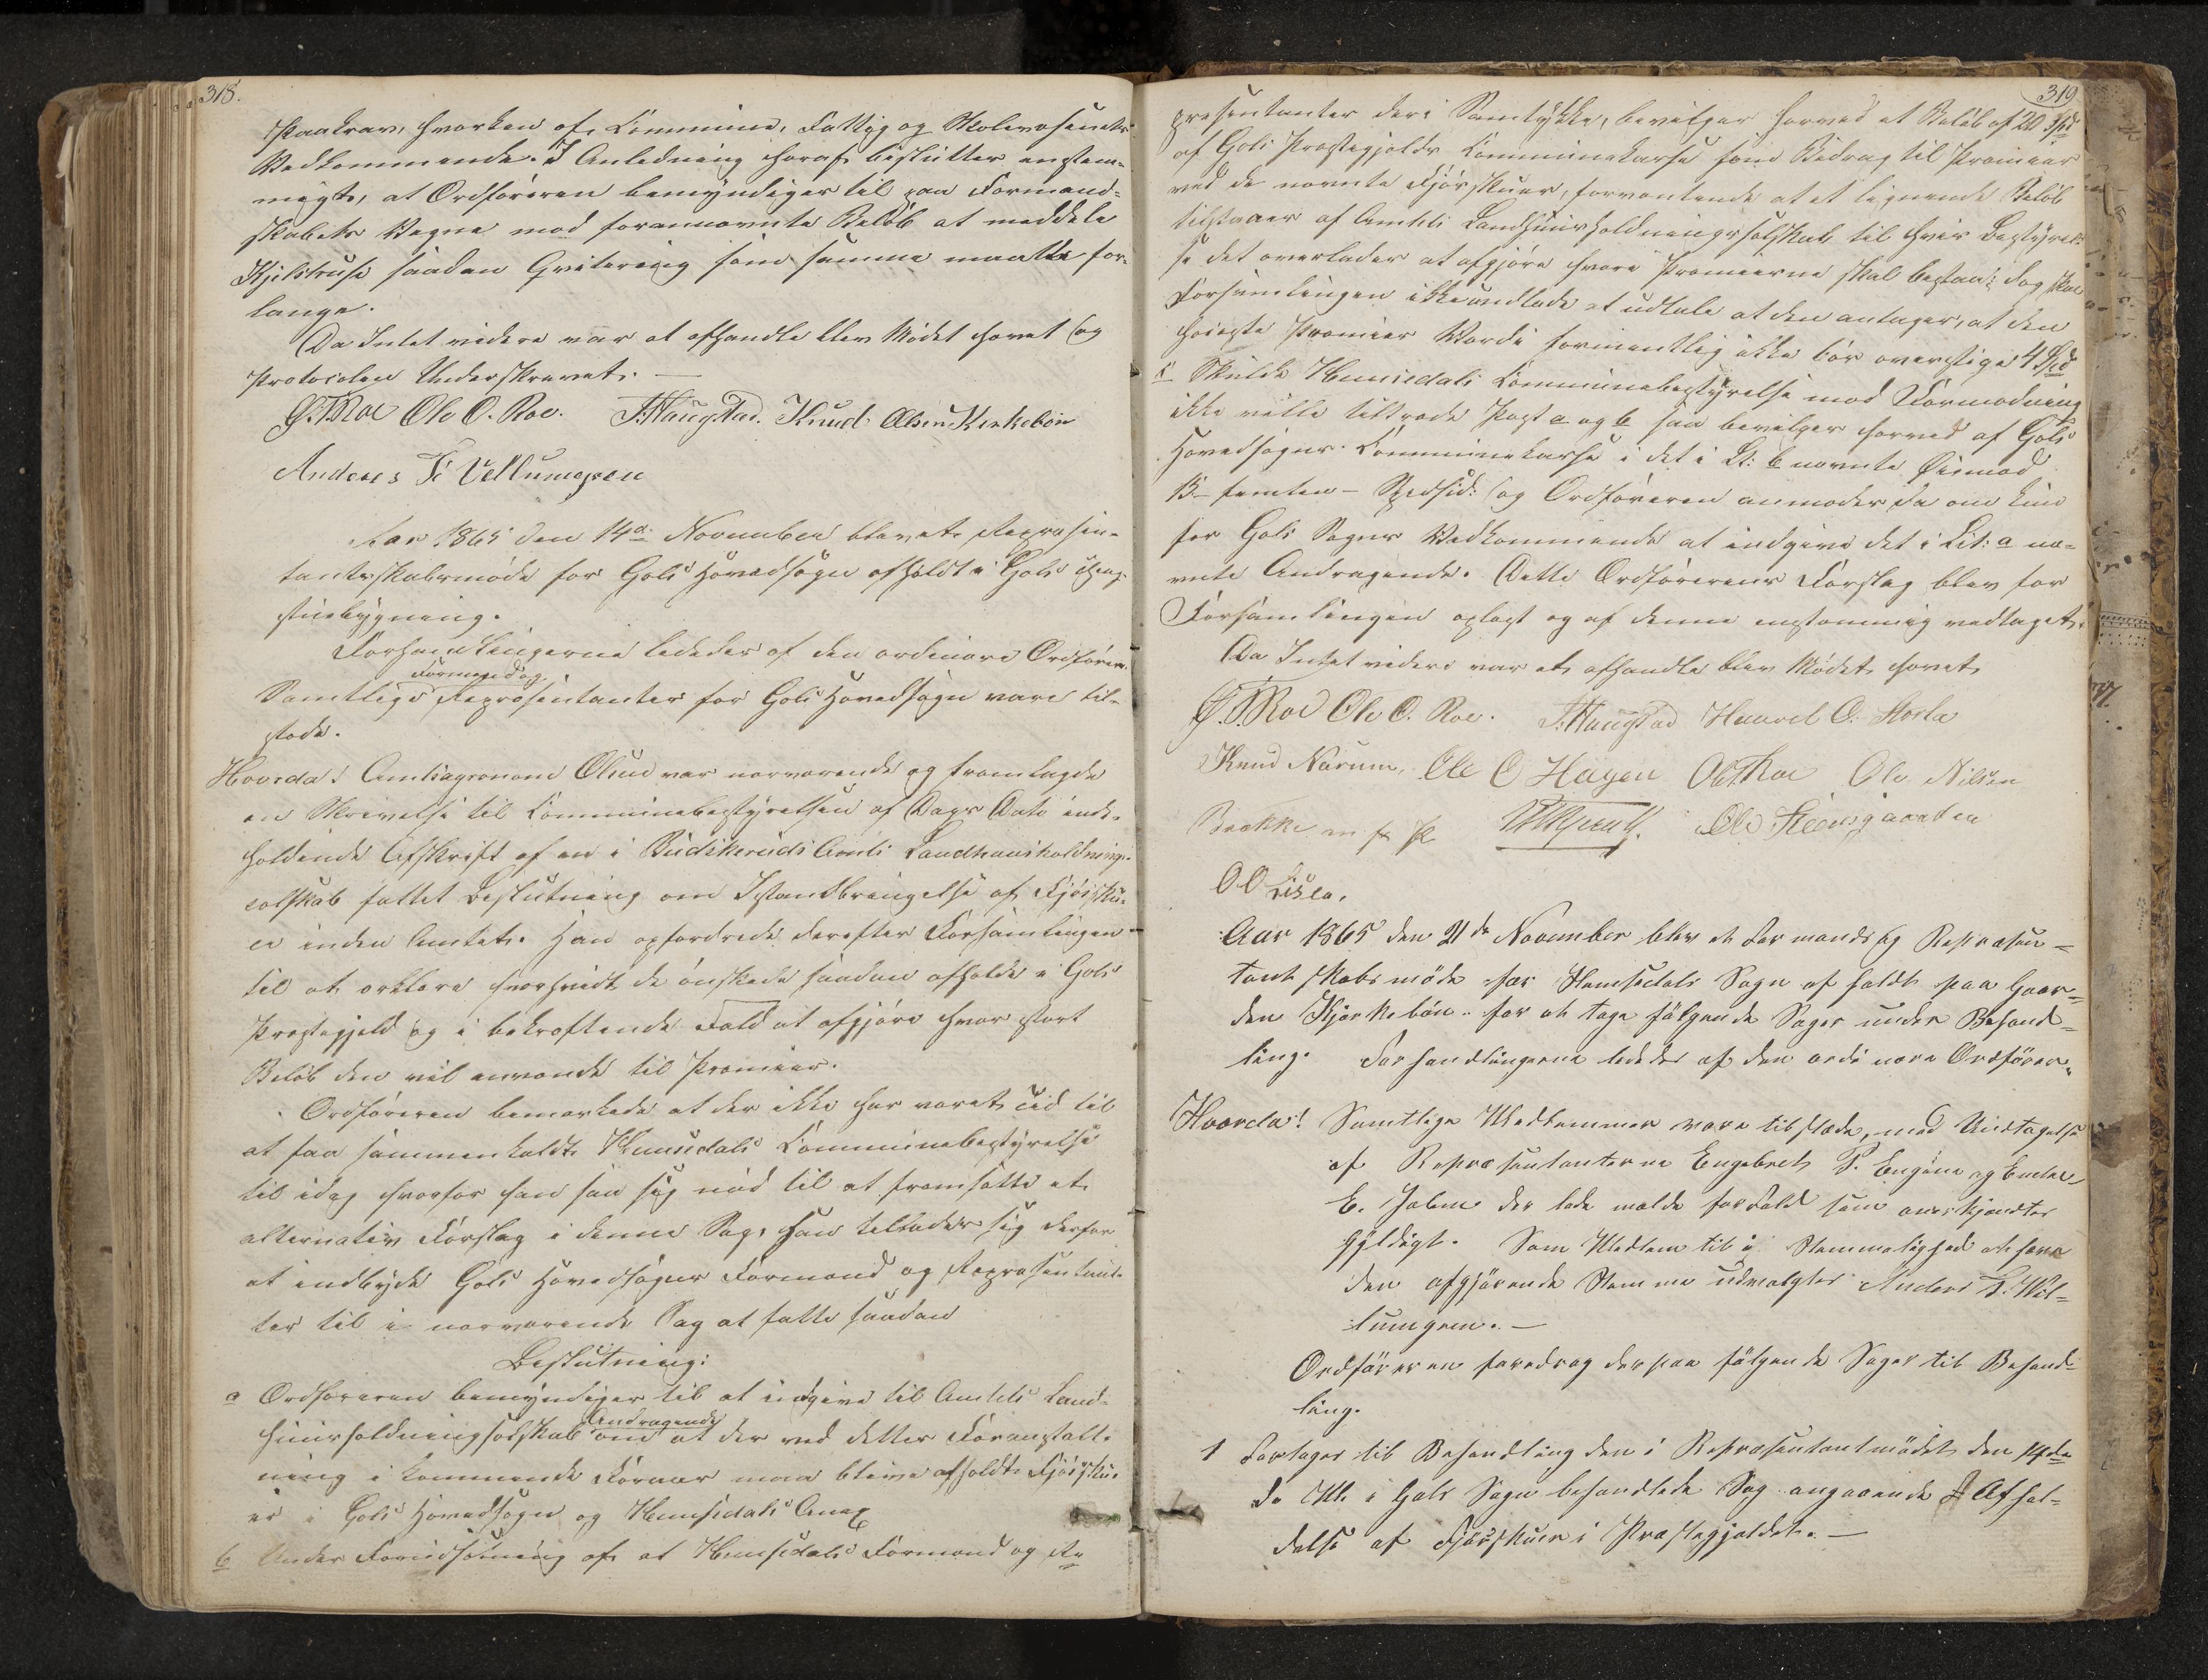 318.
Paakrav, hverken af Commune, Fattig og Skolevæsenets
Vedkommende. I Anledning heraf besluttes enstem-
migt, at Ordføreren bemyndiges til paa Formand-
skabets Vegne mod forannævnte Beløb at meddele
saadan Qvitering som samme maatte for-
lange.
Da Intet videre var at afhandle blev Mødet hævet og
Protocolen Underskrevet. —
Ole O. Roe. T. Haugstad. Knud Olsen Kirkebøn
Anders
Aar 1865 den 14de November blev et Repræsen-
tantskabsmøde for Gols Hovedsogn afholdt i Gols Thing-
stuebygning.
Forhandlingerne lededes af den ordinære Ordfører.
Formænd og
Samtlige Repræsentanter for Gols Hovedsogn vare til-
stede.
Hvorda! Amtsagronom Olsen var nærværende og fremlagde
en Skrivelse til Communebestyrelsen af Dags Dato inde-
holdende Afskrift af en i Budskeruds Amts Landhuusholdnings-
selskab fattet Beslutning om Istandbringelse af Fjøssku-
er inden Amtet. Han opfordrede derefter Forsamlingen
til at erklære hvorvidt de ønskede saadan afholdt i Gols
Præstegjeld og i bekræftende Fald at afgjøre hvor stort
Beløb den vil anvende til Præmier.
Ordføreren bemærkede at der ikke har været Tid til
at faa sammenkaldt Hemsedals Communebestyrelse
til idag hvorfor han saa sig nød til at fremsætte et
alternativ Forslag i denne Sag, han tillader sig derfor
at indbyde Gols Hovedsogns Formænd og Repræsentan-
ter til i nærværende Sag at fatte saadan
Beslutning:
a Ordføreren bemyndiges til at indgive til Amtets Land-
Andragende
huusholdningsselskab om at der ved dettes Foranstalt-
ning i kommende Foraar maa blive afholdt Fjøssku-
er i Gols Hovedsogn og Hemsedals Anex
b Under Forudsætning af at Hemsedals Formænd og Re-
319
præsentanter deri Samtykke, bevilges herved et Beløb af 20 Spd
af Gols Præstegjelds Communekasse som Bidrag til Præmier
ved de nævnte Fjøsskuer, forventende at et lignende Beløb
tilstaaes af Amtets Landhuusholdningsselskab til hvis Bestyrel-
se det overlades at afgjøre hvori Præmierne skal bestaa; dog skal
Forsamlingen ikke undlade at udtale at den antager, at den
høieste Præmies Værdi formentlig ikke bør overstige 4 Spd
c Skulde Hemsedals Communebestyrelse mod Formodning
ikke ville tiltræde Post a og b saa bevilges herved af Gols
Hovedsogns Communekasse i det i Lit: b nævnte Øiemed
15 – femten – Speсid: og Ordføreren anmodes da om kun
for Gols Sogns Vedkommende at indgive det i Lit: a næ-
vnte Andragende. Dette Ordførerens Forslag blev for
Forsamlingen oplæst og af denne enstemmig vedtaget.
Da Intet videre var at afhandle blev Mødet hævet
Ole O. Roe. T. Haugstad
Knud Narum, Ole O Hagen Ole Nilsen
Brekke m f P
O O Lisla,
Aar 1865 den 21de November blev et Formands og Repræsen-
tantskabsmøde for Hemsedals Sogn afholdt paa Gaar-
den Kjørkebøn for at tage følgende Sager under Behand-
ling. Forhandlingerne lededes af den ordinære Ordfører.
Hvorda! Samtlige Medlemmer vare tilstæde, med Undtagelse
af Repræsentanterne Engebret P. Engene og
E. der lode melde Forfald som anerkjendtes
gyldigt. Som Medlem til i Stemmelighed at have
den afgjørende Stemme udvalgtes Anders
Ordføreren foredrog derpaa følgende Sager til Behand-
ling.
1 Foretages til Behandling den i Repræsentantmødet den 14de
d. M. i Gols Sogn behandlede Sag angaaende Afhol-
delse af Fjøsskuer i Præstegjeldet. —